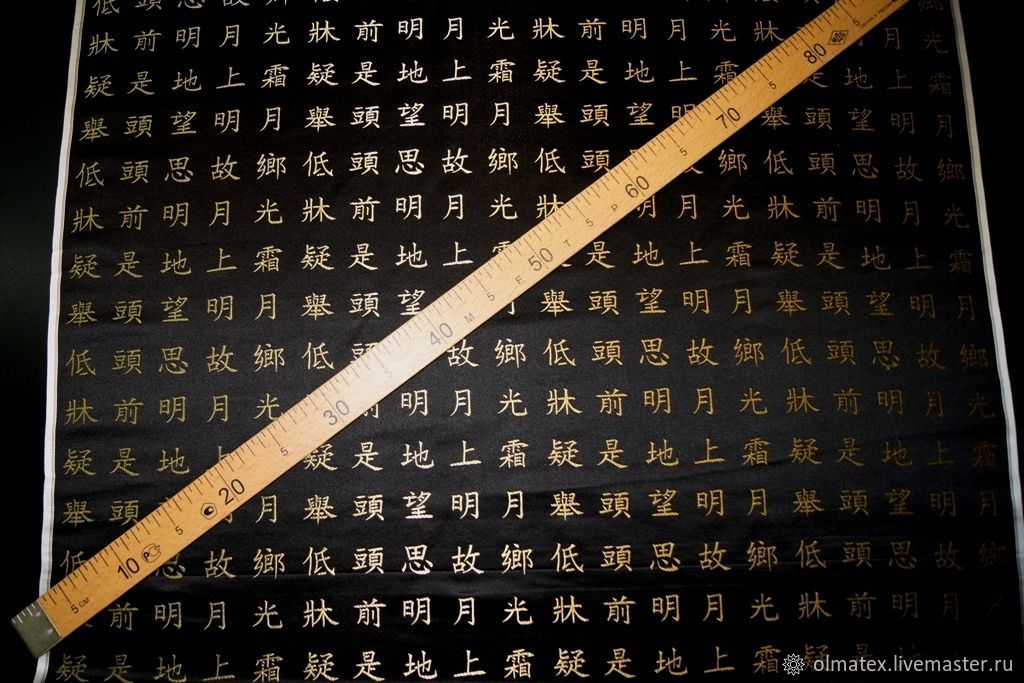 低頭思故鄉
牀前明月光牀前明月光牀前明月光月光
疑是地上霜疑是地上霜疑是地上霜地上霜
舉頭望明月舉頭望明月舉頭望舉頭望明月
低頭思故鄉低頭思故鄉低頭鄉低頭思故鄉
牀前明月光牀前明月光牀明月光牀前明月光
疑是地上霜疑是地上是地上霜疑是地上霜
舉頭望明月舉頭望月舉頭望明月舉頭望明月
低頭思故鄉低故鄉低頭思故鄉低頭思故鄉
牀前明月光明月光牀前明月光牀前明月光
疑是地上疑是地上霜疑是地上霜疑是地上霜
舉頭月舉頭望明月舉頭望明月舉頭望明月
低思故鄉低頭思故鄉低頭思故鄉低頭思故鄉
前明月光牀前明月光牀前明月光牀前明月
疑是地上霜疑是地上霜疑是地上霜疑是地
5 СМ 10 5 20 5 30 5 40 М 5 Е 50 Т 5 Р 60 5 70 5 80 5
olmatex.livemaster.ru